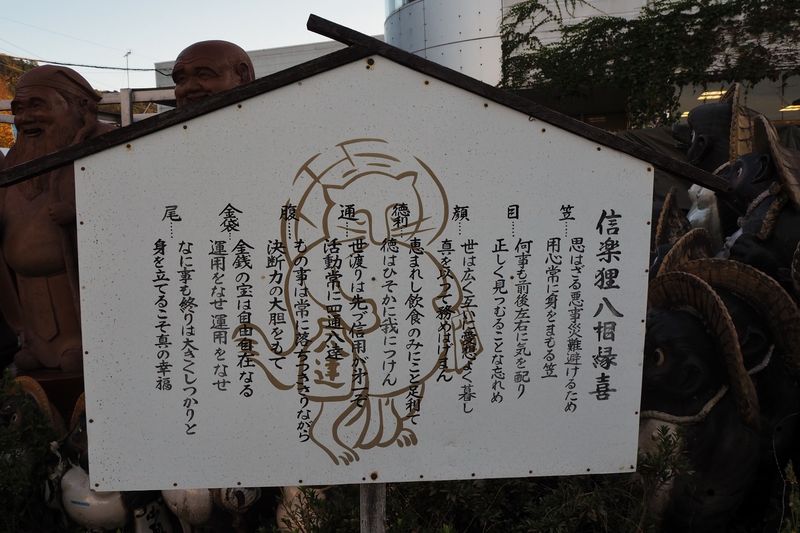 信楽狸八相縁喜
笠……思はざる悪事災難避けるため
用心常に身をまもる笠
目……何事も前後左右に気を配り
正しく見つむることな忘れめ
顔……世は広く互いに愛想よく暮し
真を以って務めはげまん
徳利……恵まれし飲食のみにこと足利て
徳はひそかに我につけん
通……世渡りは先づ信用が第一ぞ
活動常に四通八達
腹……もの事は常に落ちつきさりながら
決断力の大胆をもて
金袋……金銭の宝は自由自在なる
運用をなせ運用をなせ
尾……なに事も終りは大きくしっかりと
身を立てるこそ真の幸福